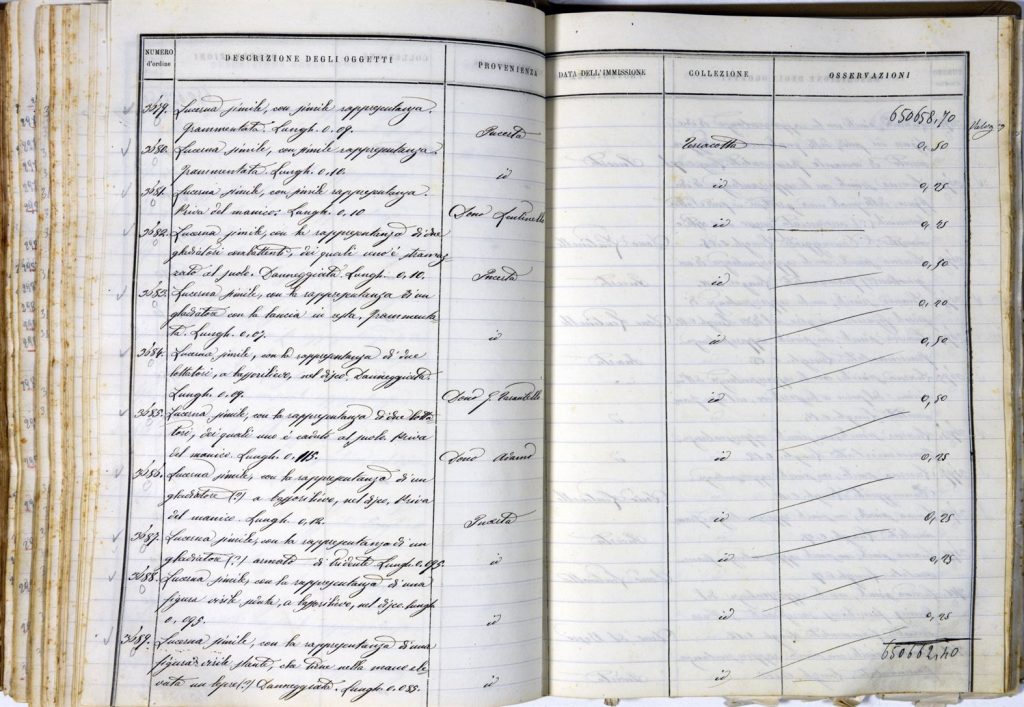 NUMERO d'ordine DESCRIZIONE DEGLI OGGETTI PROVENIENZA DATA DELL'IMMISSIONE COLLEZIONE OSSERVAZIONI
650658,70
3679. Lucerna simile, con simile rappresentanza.
Frammentata. Lungh. 0,09. Incerta Terracotta 0,50
3680. Lucerna simile, con simile rappresentanza.
Frammentata. Lungh. 0,10. id id 0,25
3681. Lucerna simile, con simile rappresentanza.
Priva del manico: Lungh. 0,10 Dono id 0,25
3682. Lucerna simile, con la rappresentanza di due
gladiatori combattenti, dei quali uno è stramaz
zato al suolo. Danneggiata. Lungh. 0,10. Incerta id 0,50
3683. Lucerna simile, con la rappresentanza di un
gladiatore con la lancia in resta. Frammenta
ta. Lungh. 0,07. id id 0,40
3684. Lucerna simile, con la rappresentanza di due
lottatori, a bassorilievo, nel disco. Danneggiata.
Lungh. 0,09. Dono G. id 0,50
3685. Lucerna simile, con la rappresentanza di due lotta
tori, dei quali uno è caduto al suolo. Priva
del manico. Lungh. 0,115. Dono Adamo id 0,50
3686. Lucerna simile, con la rappresentanza di un
gladiatore (?) a bassorilievo, nel disco. Priva
del manico. Lungh. 0,12. Incerta id 0,25
3687. Lucerna simile, con la rappresentanza di un
gladiatore (?) armato di tridente Lungh. 0,095. id id 0,25
3688. Lucerna simile, con la rappresentanza di una
figura virile a bassorilievo, nel disco. Lungh.
0,095. id id 0,25
3689. Lucerna simile, con la rappresentanza di una
figura virile stante, che tiene nella mano ele
vata un lepre (?) Danneggiata. Lungh. 0,085. id id 0,25
650662,40